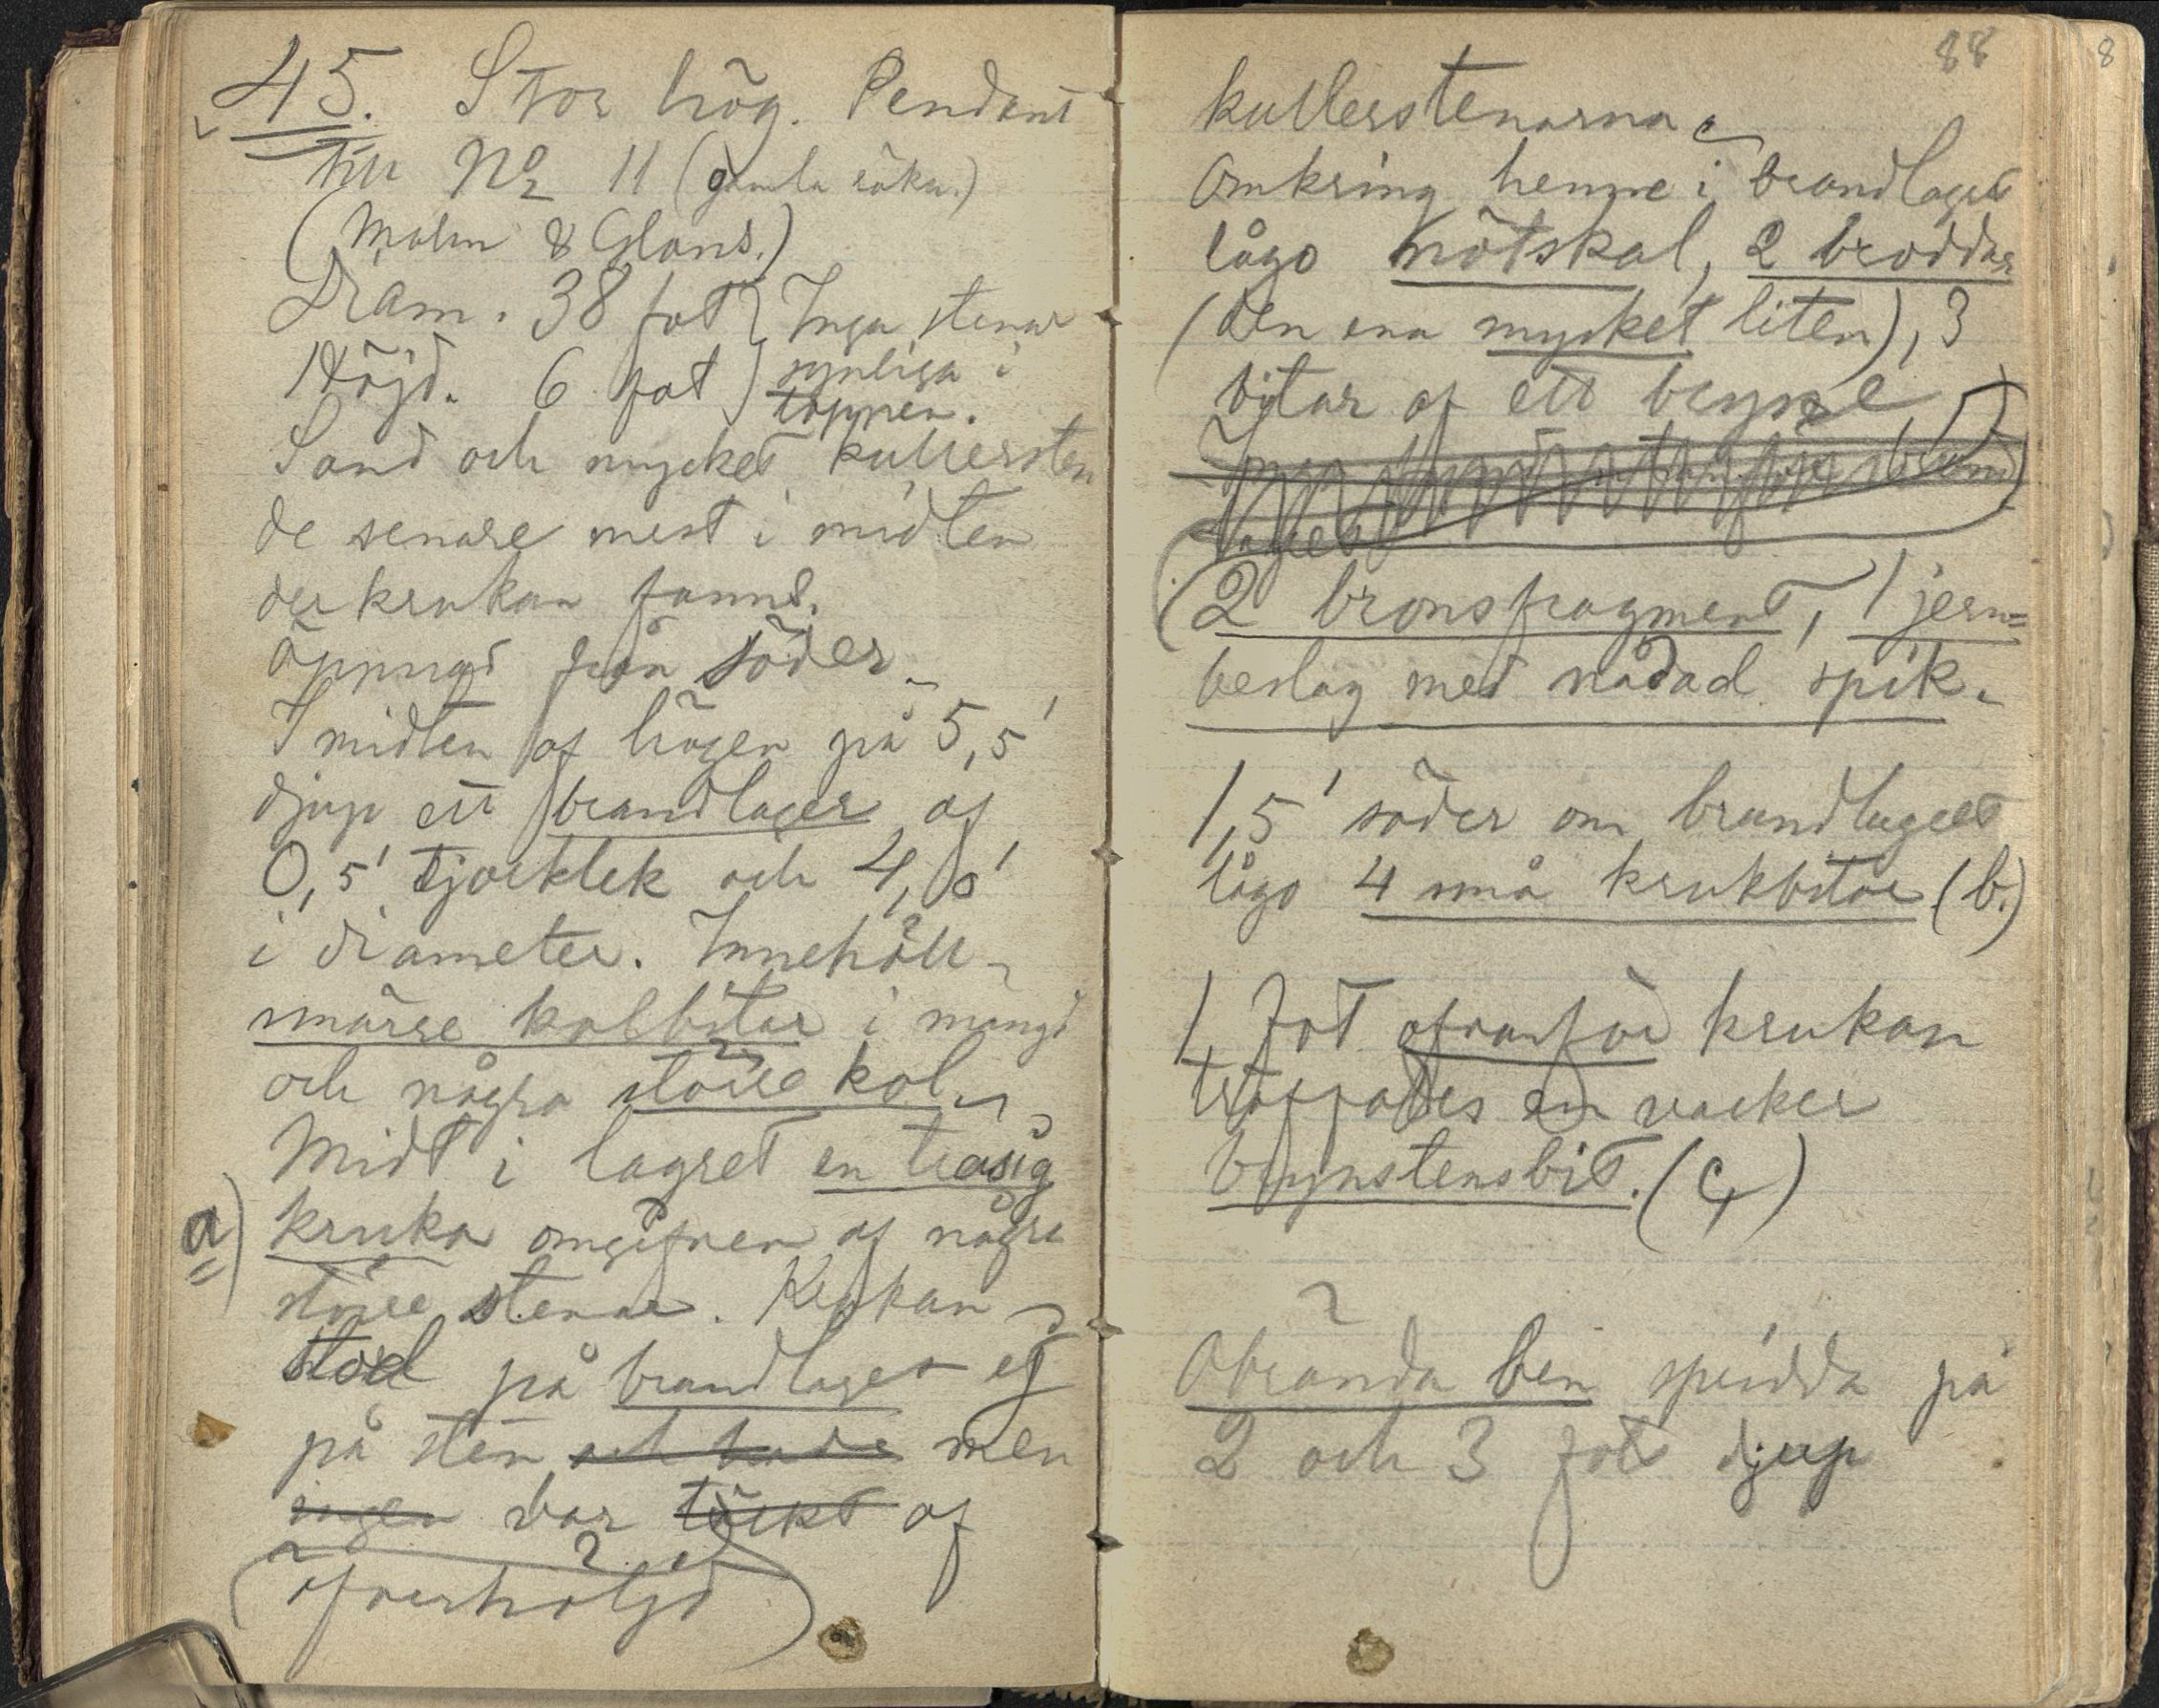 45. Stor hög. Pendant
till No 11 (gamla räkn.)
(Malm & Glans.)
Diam. 38 fot } Inga stenar
Höjd. 6 fot } synliga i
toppen.
Sand och mycket kullersten
de senare mest i midten
der krukan fanns.
Öppnad från söder.
I midten af högen på 5,5'
djup ett brandlager af
0,5' tjocklek och 4,
i diameter. Innehöll
smärre kolbitar i mängd
och några större kol.
Midt i lagret en trasig
a) kruka omgifven af några
större stenar. Krukan
stod på brandlagret ej
på sten och hade men
ingen var täckt af
(öfverhöljd)
88
kullerstenarna.
Omkring henne i brandlagret
lågo nötskal, 2 broddar
(den ena mycket liten), 3
bitar af ett bryne
lagret
(2 bronsfragment, 1 jern=
beslag med nådad spik.
1,5' söder om brandlagret
lågo 4 små krukbitar (b.)
1 fot ofvanför krukan
träffades en vacker
brynstensbit. (c,)
Obrända ben spridda på
2 och 3 fots djup
8